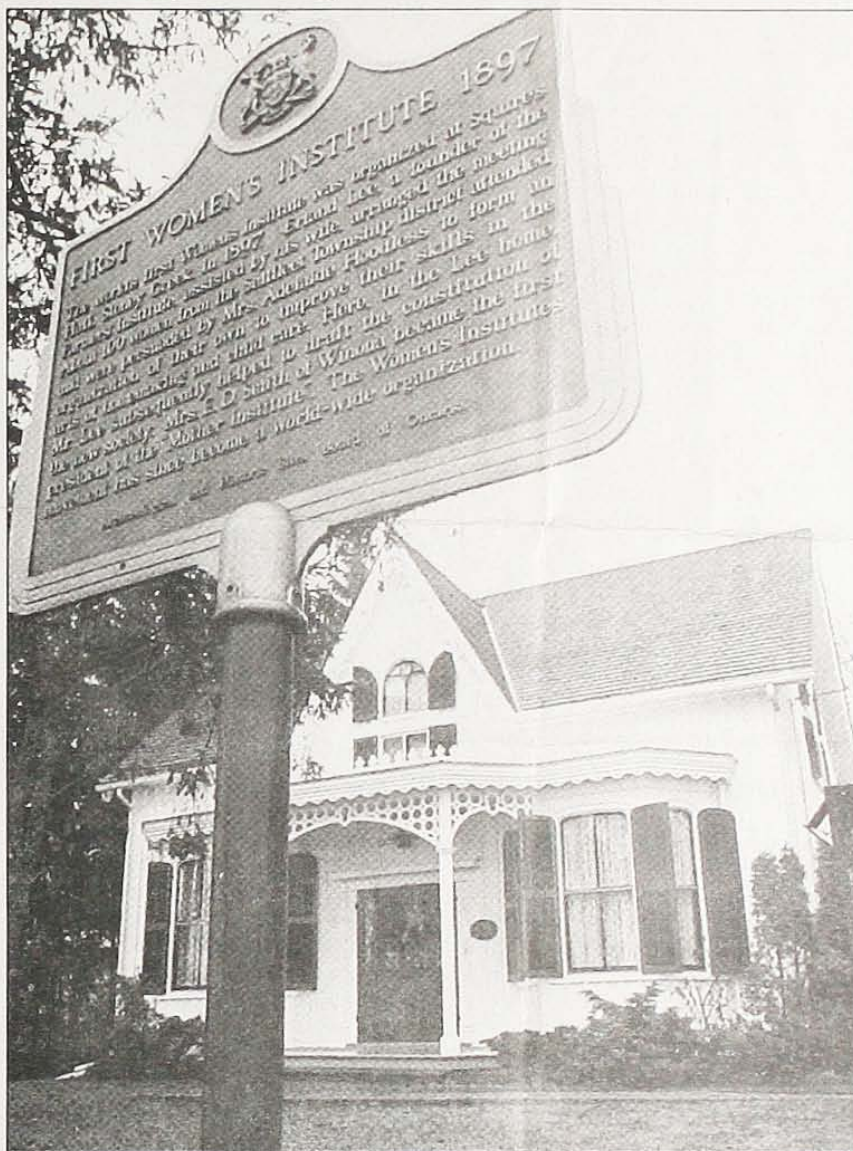 FIRST WOMEN'S INSTITUTE 1897
The world's first Women's Institute was organized at Squire's
Hall, Stoney Creek, in 1897. Erland Lee, a founder of the
Farmers' Institute, assisted by his wife, arranged the meeting
About 100 women from the Saltfleet Township district attended
and were persuaded by Mrs. Adelaide Hoodless to form an
organization of their own to improve their skills in the
arts of homemaking and child care. Here, in the Lee home,
Mr. Lee subsequently helped to draft the constitution of
the new society. Mrs. E. D. Smith of Winona became the first
president of the "Mother Institute". The Women's Institutes
movement has since become a world-wide organization.
Archaeological and Historic Sites Board of Ontario.